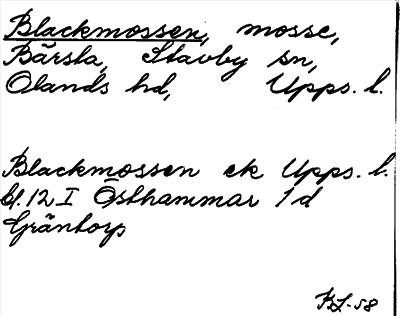 Blackmossen, mosse,
Bärsta, Stavby sn,
Olands hd, Upps. l.
Blackmossen ek Upps. l.
bl. 12 I Östhammar 1 d
Gräntorp
KL-58